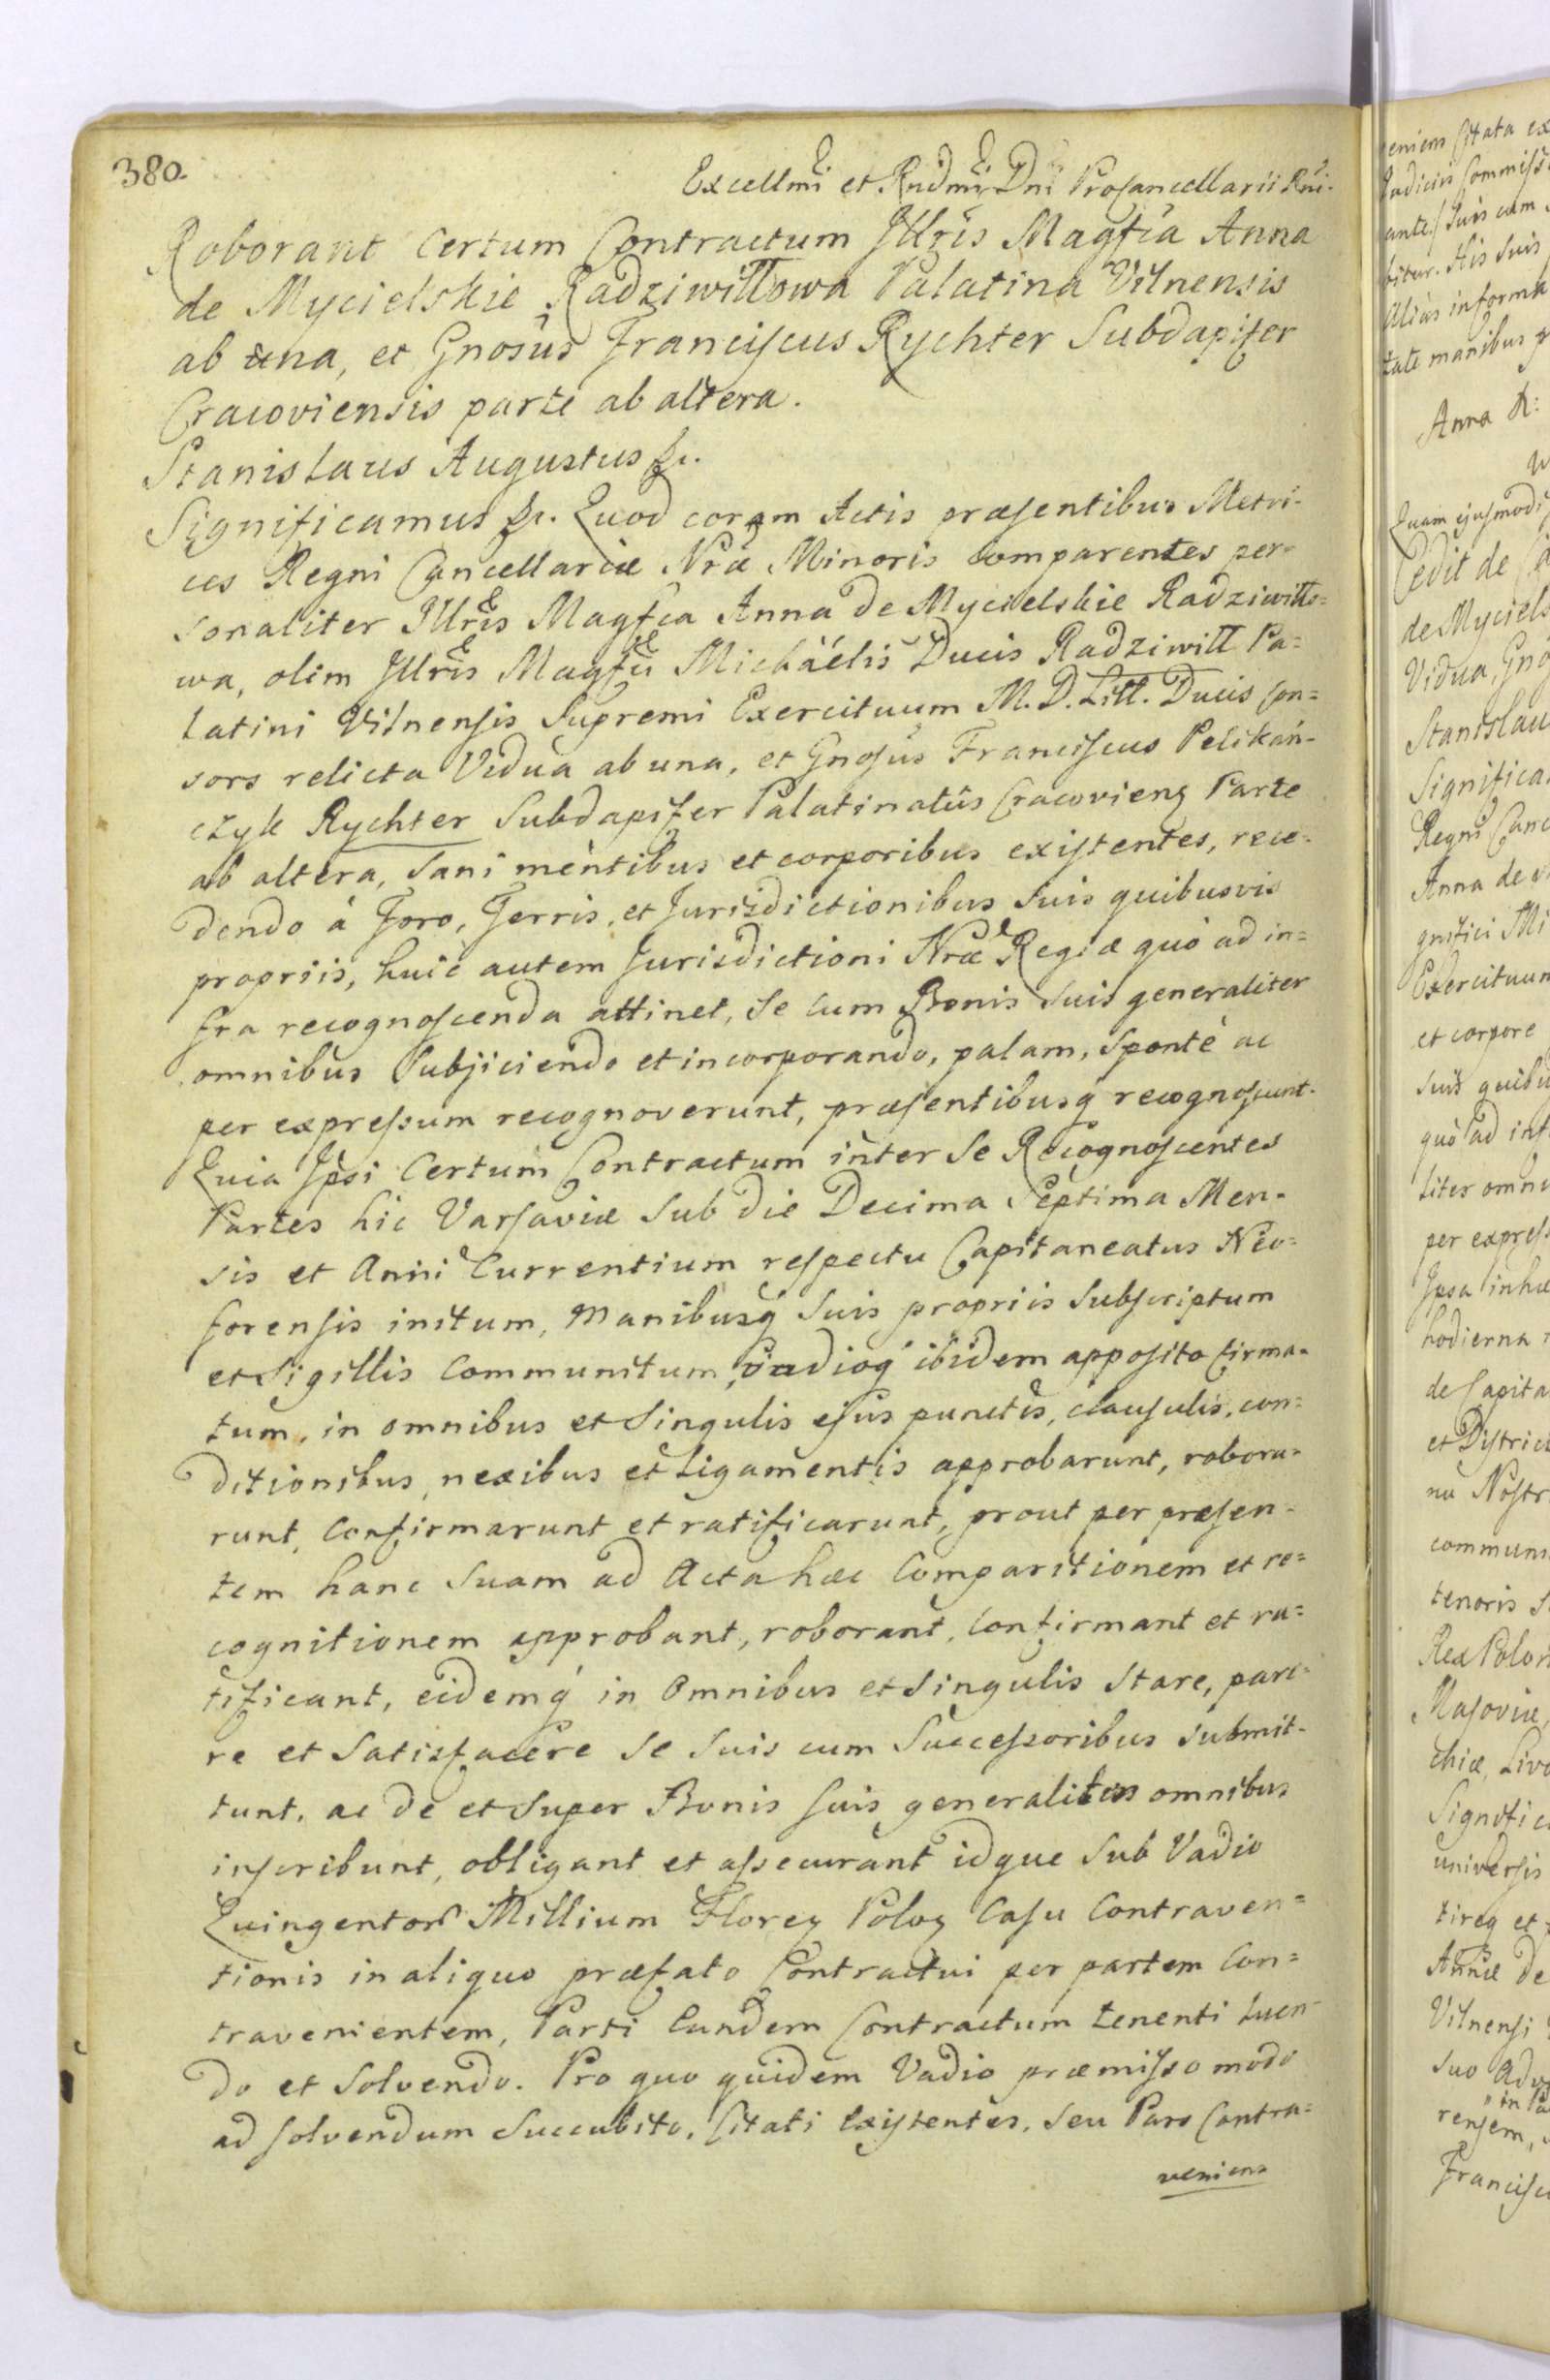 380.
Excellmi et Rndmi Dni Procancellarii Rni.
Roborant certum Contractum Illris Magfca Anna
de Mycielskie Radziwiłłowa Palatina Vilnensis
ab una, et Gnosus Franciscus Rychter Subdapifer
Cracoviensis parte ab altera.
Stanislaus Augustus &c.
Significamus &c. Quod coram Actis præsentibus Metri-
ces Regni Cancellariæ Nræ Minoris comparentes per-
sonaliter Illris Magfca Anna de Mycielskie Radziwiłło=
wa, olim Illris Magfci Michàelis Ducis Radziwiłł Pa=
latini Vilnensis Supremi Exercituum M. D. Litt. Ducis con=
sors relicta Vidua ab una, et Gnosus Franciscus Pelikań-
czyk Rychter Subdapifer Palatinatûs Cracovieng Parte
ab altera, sani mentibus et corporibus existentes, rece-
dendo à Foro, Terris, et Jurisdictionibus suis quibusvis
propriis, huic autem Jurisdictioni Nræ Regiæ quò ad in=
fra recognoscenda attinet, Se cum Bonis suis generaliter
omnibus Subjiciendo et incorporando, palam, spontè ac
per expressum recognoverunt, præsentibusq recognoscunt.
Quia Ipsi certum Contractum inter Se Recognoscentes
Partes hic Varsaviæ sub die Decima Septima Men-
sis et Anni Currentium respectu Capitaneatus Neo=
forensis initum, Manibusq suis propriis subscriptum
et Sigillis Communitum, vadioq ibidem apposito firma-
tum, in omnibus et singulis ejus punctis, clausulis, con=
ditionibus, nexibus et Ligamentis approbarunt, robora-
runt, Confirmarunt et ratificarunt, prout per præsen-
tem hanc Suam ad Acta hæc Comparitionem et re=
cognitionem approbant, roborant, Confirmant et ra=
tificant, eidemq in Omnibus et Singulis Stare, pare-
re et Satisfacere Se Suis cum Successoribus submit-
tunt, ac de et super Bonis suis generaliter omnibus
inscribunt, obligant et assecurant idque Sub Vadio
Quingentor Millium Floreg Polog Casu Contraven=
tionis in aliquo præfato Contractui per partem Con=
travenientem, Parti Eundem Contractum tenenti luen-
do et Solvendo. Pro quo quidem Vadio præmisso modo
ad solvendum Succubito, Citati Existentes, seu Pars Contra=
veniens
eniens Citata ex
Judicin Commiss
ante / Suis cum
bitur. His suis
alias informa
tate manibus p
Anna R:
Quam ejusmodi
Cedit de
de Myciels
Vidua, Gno
Stanislau
Significa
Regni Canc
Anna de
gnifici Mi
Exercituum
et corpore
suis quibu
quò ad inf
liter omni
per expres
Ipsa inhæ
hodierna
de Capita
et Distric
nu Nostr
communi
tenoris
Rex Polon
Masoviæ,
chiæ, Livo
Signific
universis
tireq et
Annæ de
Vilnensi
suo Adv
rensem,
Francisc